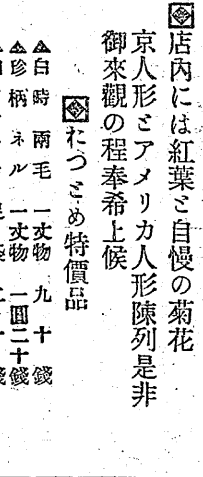 店內には紅葉と自慢の菊花
京人形とアメリカ人形陳列是非
御來觀の程奉希上候
たつとめ特價品
白時兩毛 一丈物 九十錢
珍柄ネル 一丈物 一圓二十錢